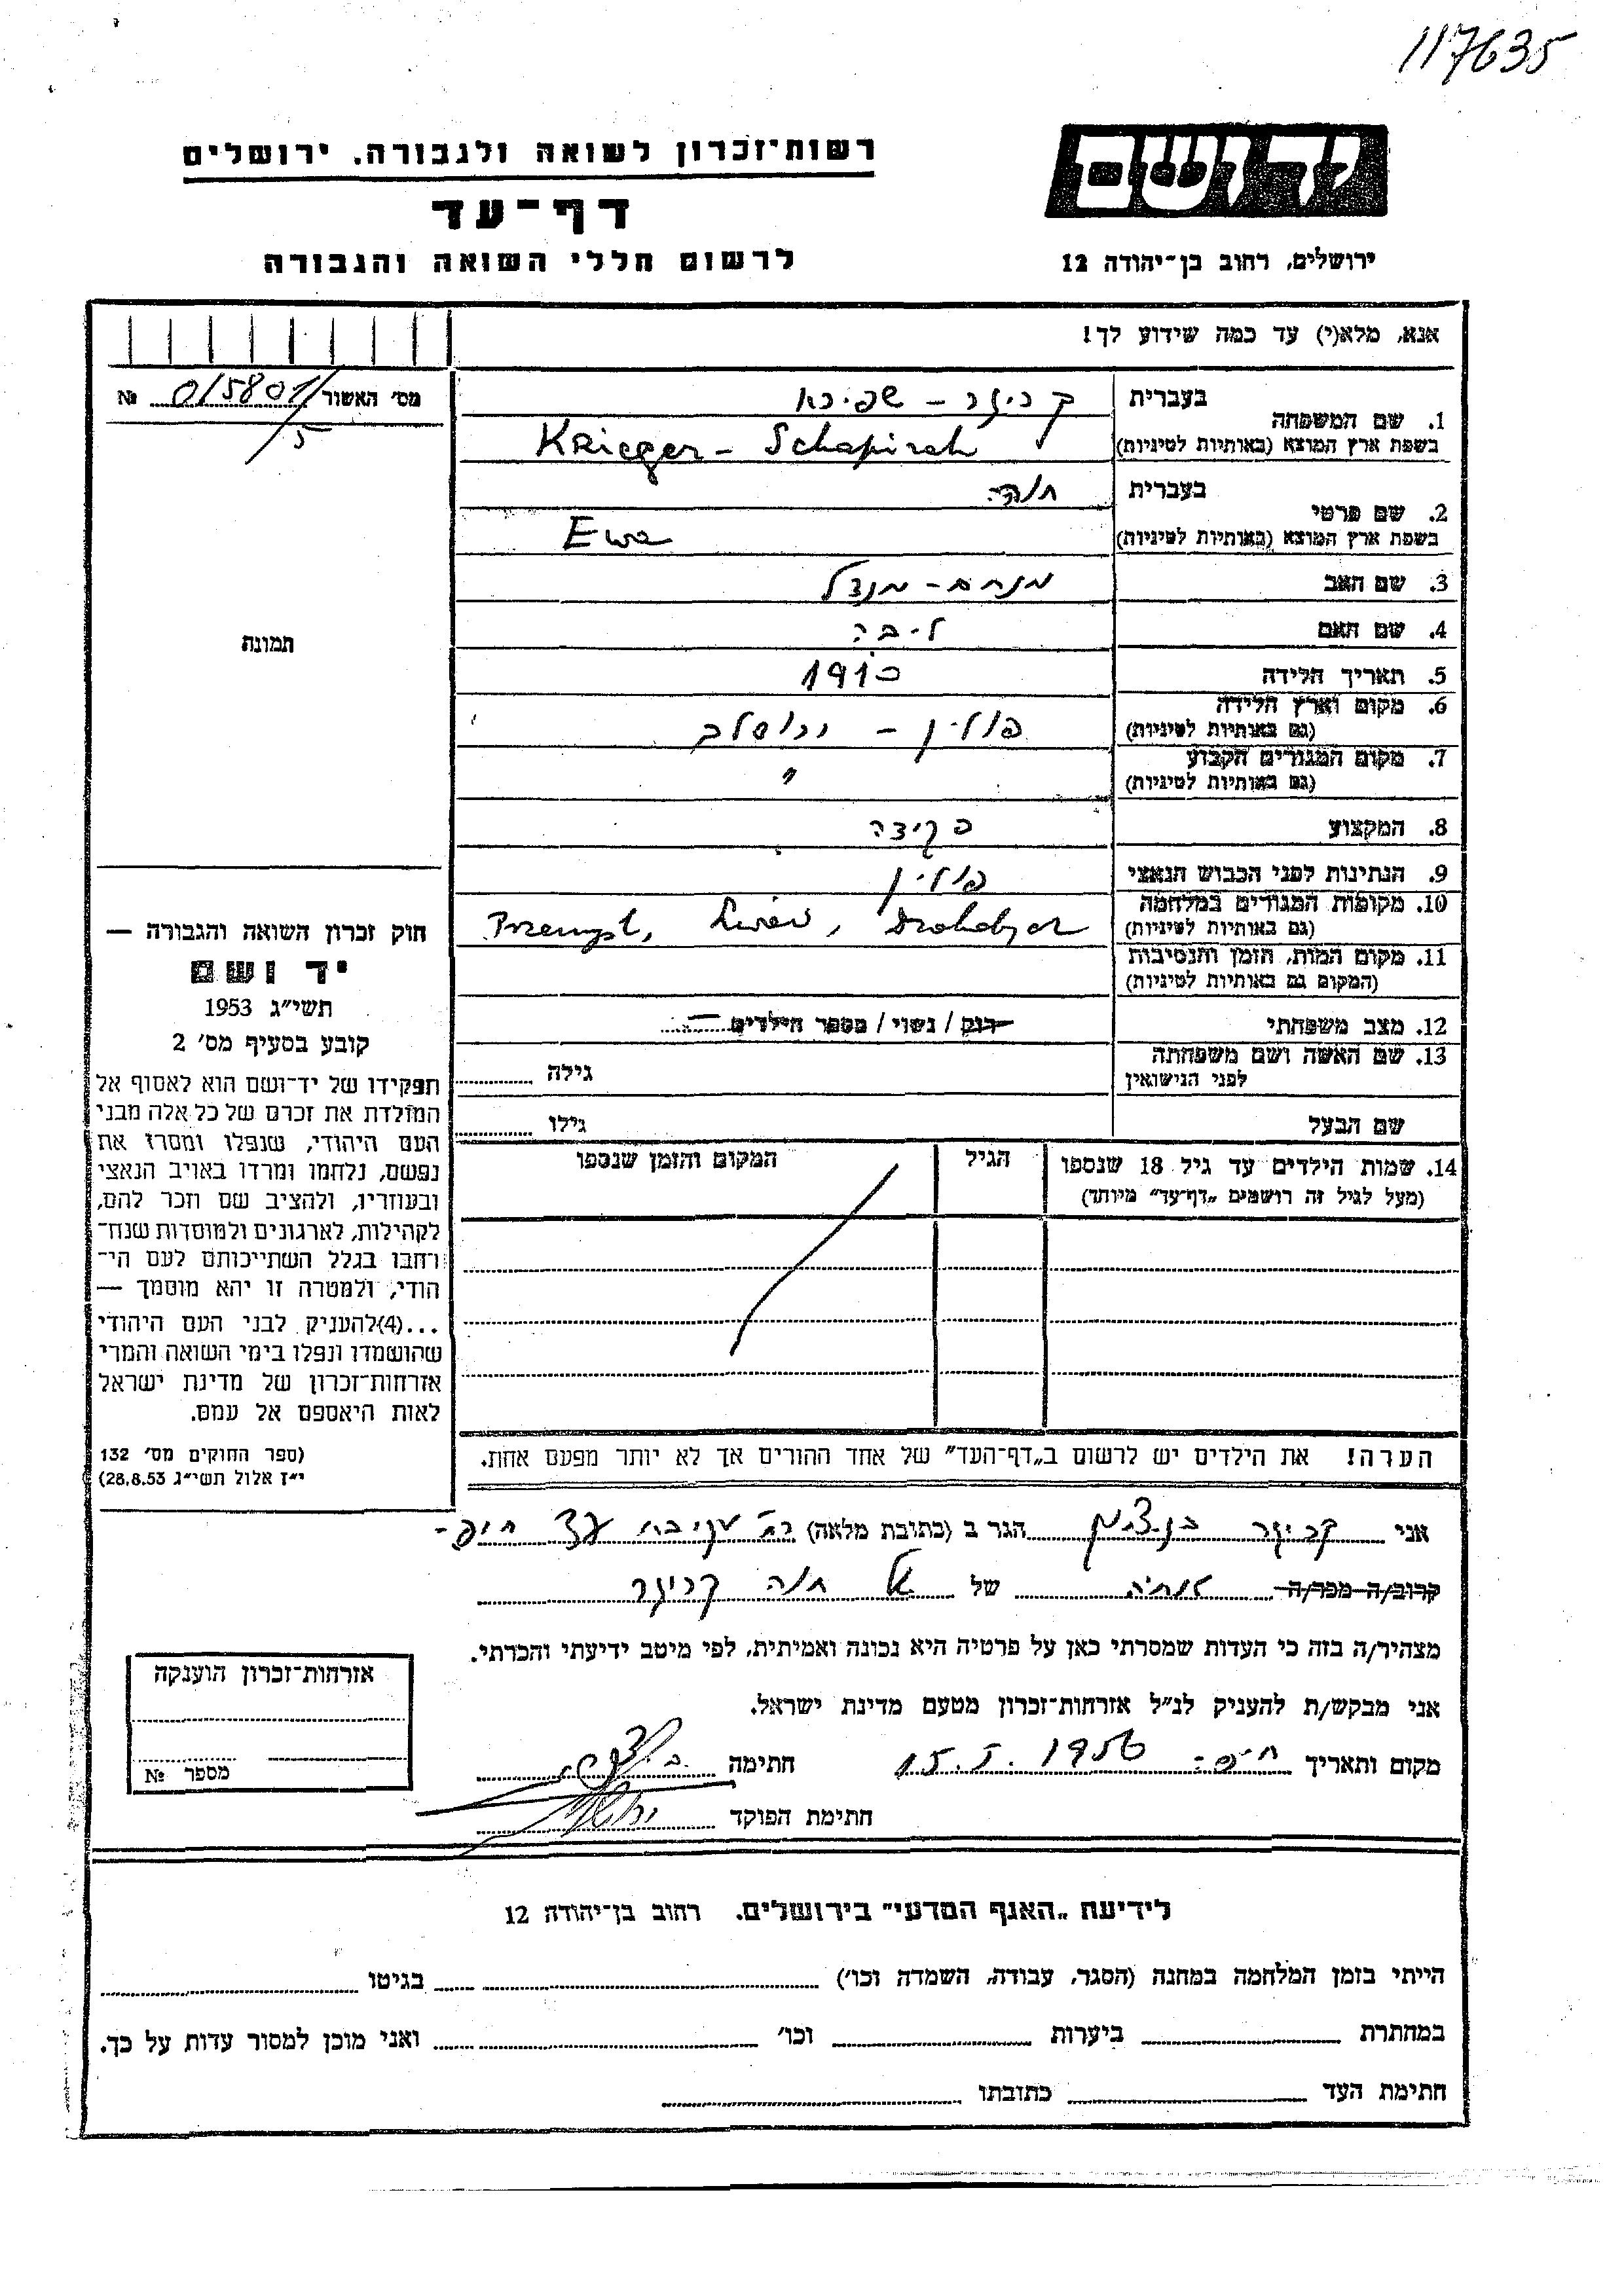 117635
רשות־זכרון לשואה ולגבורה, ירושלים
דף־עד
לרשום חללי השואה והגבורה
יד ושם
ירושלים, רחוב בן־יהודה 12
אנא, מלא(י) עד כמה שידוע לך!
מס׳ האשור 015801/5 №
1. שם המשפחה בעברית קריגר – שפירא
בשפת ארץ המוצא (באותיות לטיניות) Krieger – Schapirah
2. שם פרטי בעברית חנה
בשפת ארץ המוצא (באותיות לטיניות) Ewa
3. שם האב מנחם – מנדל
4. שם האם ליבה
5. תאריך הלידה 1910
6. מקום וארץ הלידה (גם באותיות לטיניות) פולין – ירוסלב
7. מקום המגורים הקבוע (גם באותיות לטיניות) "
8. המקצוע פקידה
9. הנתינות לפני הכבוש הנאצי פולין
10. מקומות המגורים במלחמה (גם באותיות לטיניות) Przemysl, Lwów, Drohobycz
11. מקום המות, הזמן והנסיבות (המקום גם באותיות לטיניות)
12. מצב משפחתי רוק / נשוי / מספר הילדים
13. שם האשה ושם משפחתה לפני הנישואין גילה
שם הבעל גילו
14. שמות הילדים עד גיל 18 שנספו הגיל המקום והזמן שנספו
(מעל לגיל זה רושמים „דף־עד" מיוחד)
הערה! את הילדים יש לרשום ב„דף־העד" של אחד ההורים אך לא יותר מפעם אחת.
תמונה
חוק זכרון השואה והגבורה —
יד ושם
תשי״ג 1953
קובע בסעיף מס׳ 2
תפקידו של יד־ושם הוא לאסוף אל
המולדת את זכרם של כל אלה מבני
העם היהודי, שנפלו ומסרו את
נפשם, נלחמו ומרדו באויב הנאצי
ובעוזריו, ולהציב שם וזכר להם,
לקהילות, לארגונים ולמוסדות שנח־
רבו בגלל השתייכותם לעם הי־
הודי, ולמטרה זו יהא מוסמך —
...(4)להעניק לבני העם היהודי
שהושמדו ונפלו בימי השואה והמרי
אזרחות־זכרון של מדינת ישראל
לאות היאספם אל עמם.
(ספר החוקים מס׳ 132
י״ז אלול תשי״ג 28.8.53)
אני קריגר בן־ציון הגר ב (כתובת מלאה)
קרוב/ה מכר/ה של חנה קריגר
מצהיר/ה בזה כי העדות שמסרתי כאן על פרטיה היא נכונה ואמיתית, לפי מיטב ידיעתי והכרתי.
אני מבקש/ת להעניק לנ״ל אזרחות־זכרון מטעם מדינת ישראל.
מקום ותאריך חיפה 15.5.1956 חתימה
חתימת הפוקד
אזרחות־זכרון הוענקה
מספר №
לידיעת „האגף המדעי" בירושלים, רחוב בן־יהודה 12
הייתי בזמן המלחמה במחנה (הסגר, עבודה, השמדה וכו׳) בגיטו
במחתרת ביערות וכו׳ ואני מוכן למסור עדות על כך.
חתימת העד כתובתו